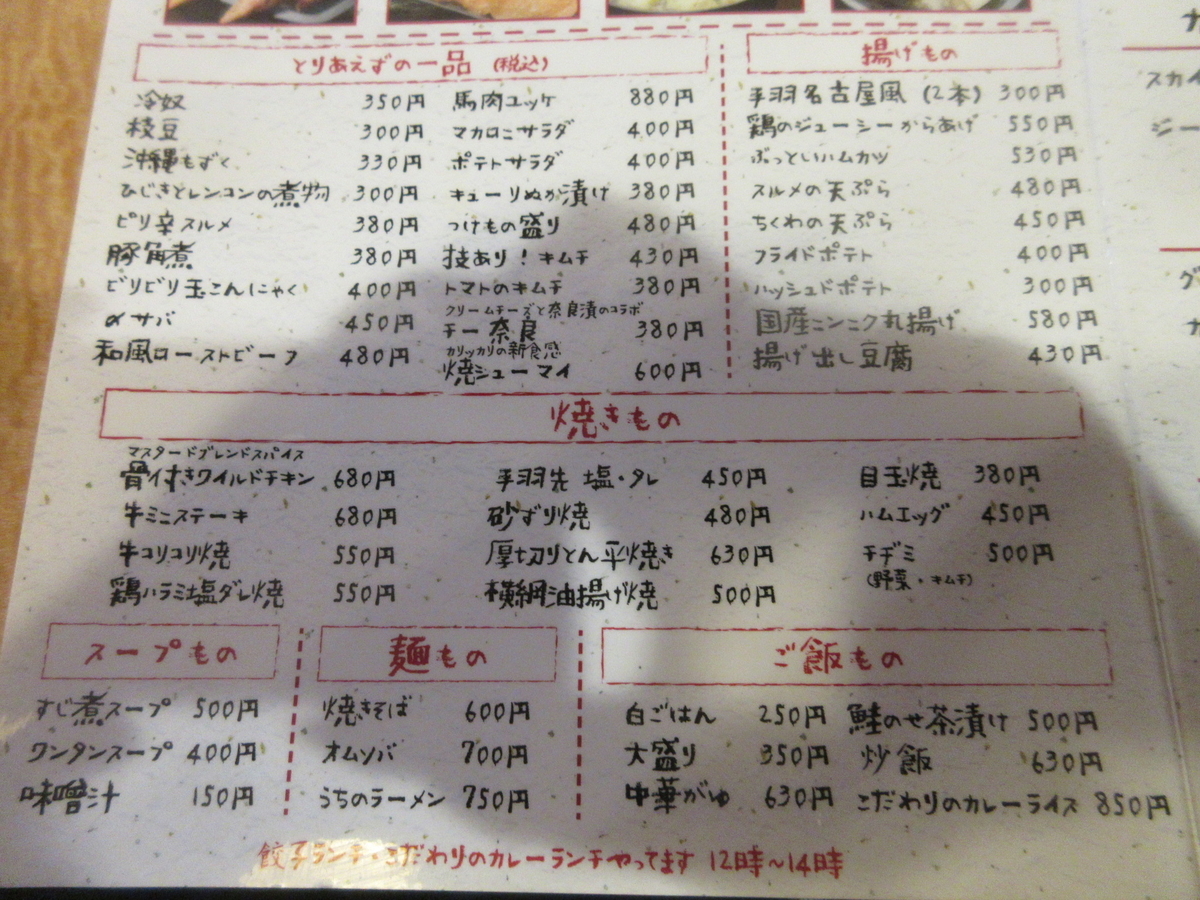 とりあえずの一品 (税込)
冷奴 350円
枝豆 300円
沖縄もずく 330円
ひじきとレンコンの煮物 300円
ピリ辛スルメ 380円
豚角煮 380円
ビリビリ玉こんにゃく 400円
〆サバ 450円
和風ローストビーフ 480円
馬肉ユッケ 880円
マカロニサラダ 400円
ポテトサラダ 400円
キューリぬか漬け 380円
つけもの盛り 480円
技あり！キムチ 430円
トマトのキムチ 380円
クリームチーズと奈良漬のコラボ
チー奈良 380円
カリッカリの新食感
焼シューマイ 600円
揚げもの
手羽名古屋風 (2本) 300円
鶏のジューシーからあげ 550円
ぶっといハムカツ 530円
スルメの天ぷら 480円
ちくわの天ぷら 450円
フライドポテト 400円
ハッシュドポテト 300円
国産ニンニク丸揚げ 580円
揚げ出し豆腐 430円
焼きもの
マスタードブレンドスパイス
骨付きワイルドチキン 680円
牛ミニステーキ 680円
牛コリコリ焼 550円
鶏ハラミ塩ダレ焼 550円
手羽先 塩・タレ 450円
砂ずり焼 480円
厚切りとん平焼き 630円
横綱油揚げ焼 500円
目玉焼 380円
ハムエッグ 450円
チヂミ 500円
(野菜・キムチ)
スープもの
すじ煮スープ 500円
ワンタンスープ 400円
味噌汁 150円
麺もの
焼きそば 600円
オムソバ 700円
うちのラーメン 750円
ご飯もの
白ごはん 250円
大盛り 350円
中華がゆ 630円
鮭のせ茶漬け 500円
炒飯 630円
こだわりのカレーライス 850円
餃子ランチ・こだわりのカレーランチやってます 12時～14時
スカイ
ジー